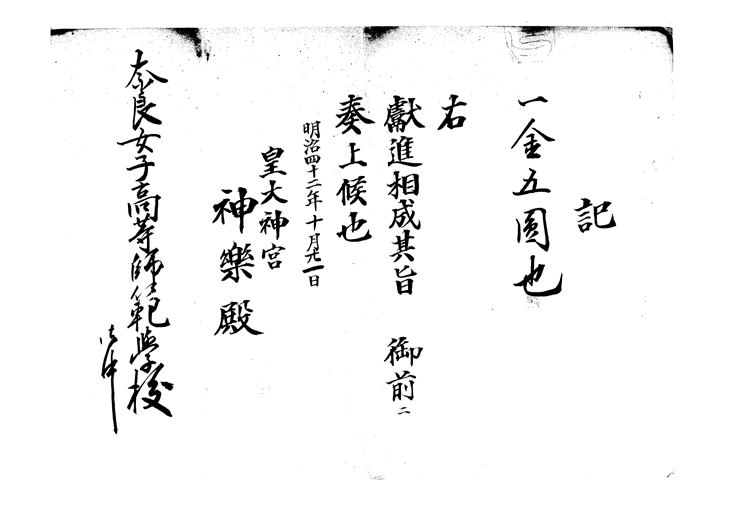 記
一金五圓也
右
獻進相成其旨 御前ニ
奏上候也
明治四十二年十月廿一日
皇大神宮
神樂殿
奈良女子高等師範學校
御中